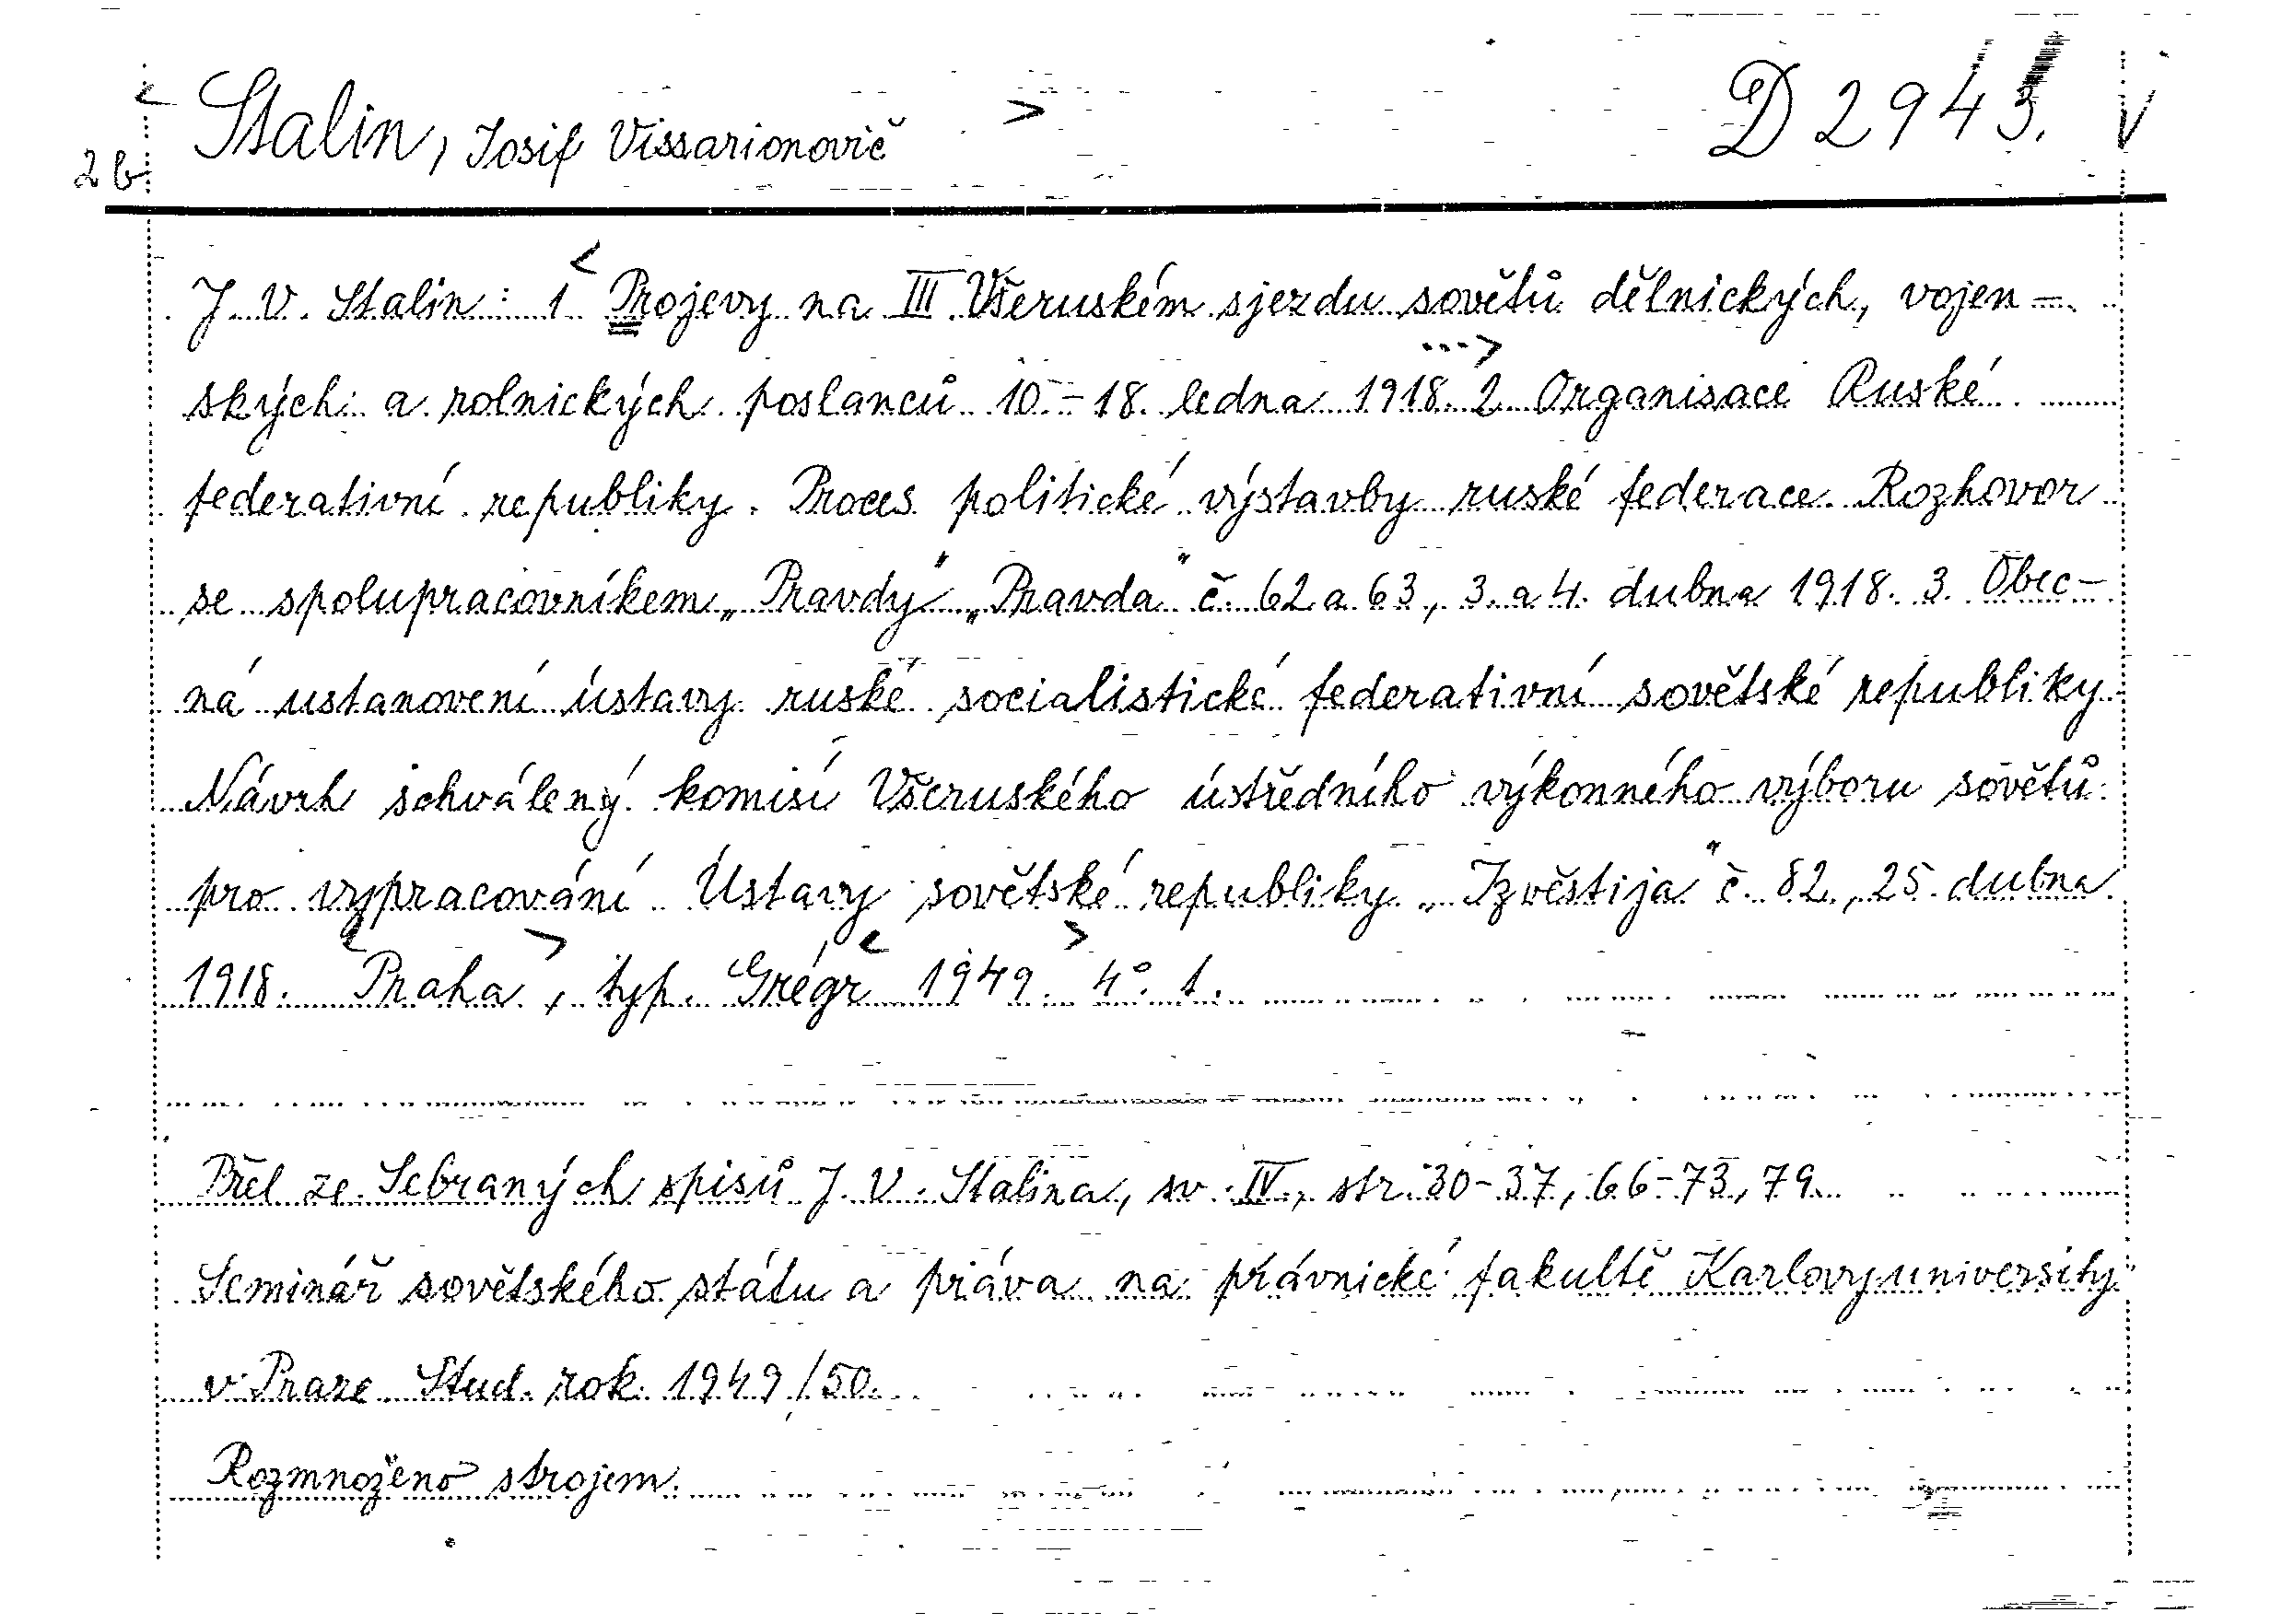 < Stalin, Josif Vissarionovič > D 2943. V
2b
J. V. Stalin: 1 < Projevy na III. Všeruském sjezdu sovětů dělnických, vojen-
ských a rolnických poslanců 10.-18. ledna 1918. ...> 2 Organisace Ruské
federativní republiky. Proces politické výstavby ruské federace. Rozhovor
se spolupracovníkem „Pravdy" „Pravda" č. 62 a 63, 3. a 4. dubna 1918. 3. Obec-
ná ustanovení ústavy ruské socialistické federativní sovětské republiky
Návrh schválený komisí Všeruského ústředního výkonného výboru sovětů
pro vypracování Ústavy sovětské republiky „Izvěstija" č. 82, 25. dubna
1918. < Praha >, typ. Grégr < 1949. > 4°. 1.
Přel ze Sebraných spisů J. V. Stalina, sv. IV, str. 30-37, 66-73, 79.
Seminář sovětského státu a práva na právnické fakultě Karlovy university
v Praze. Stud. rok 1949/50.
Rozmnoženo strojem.